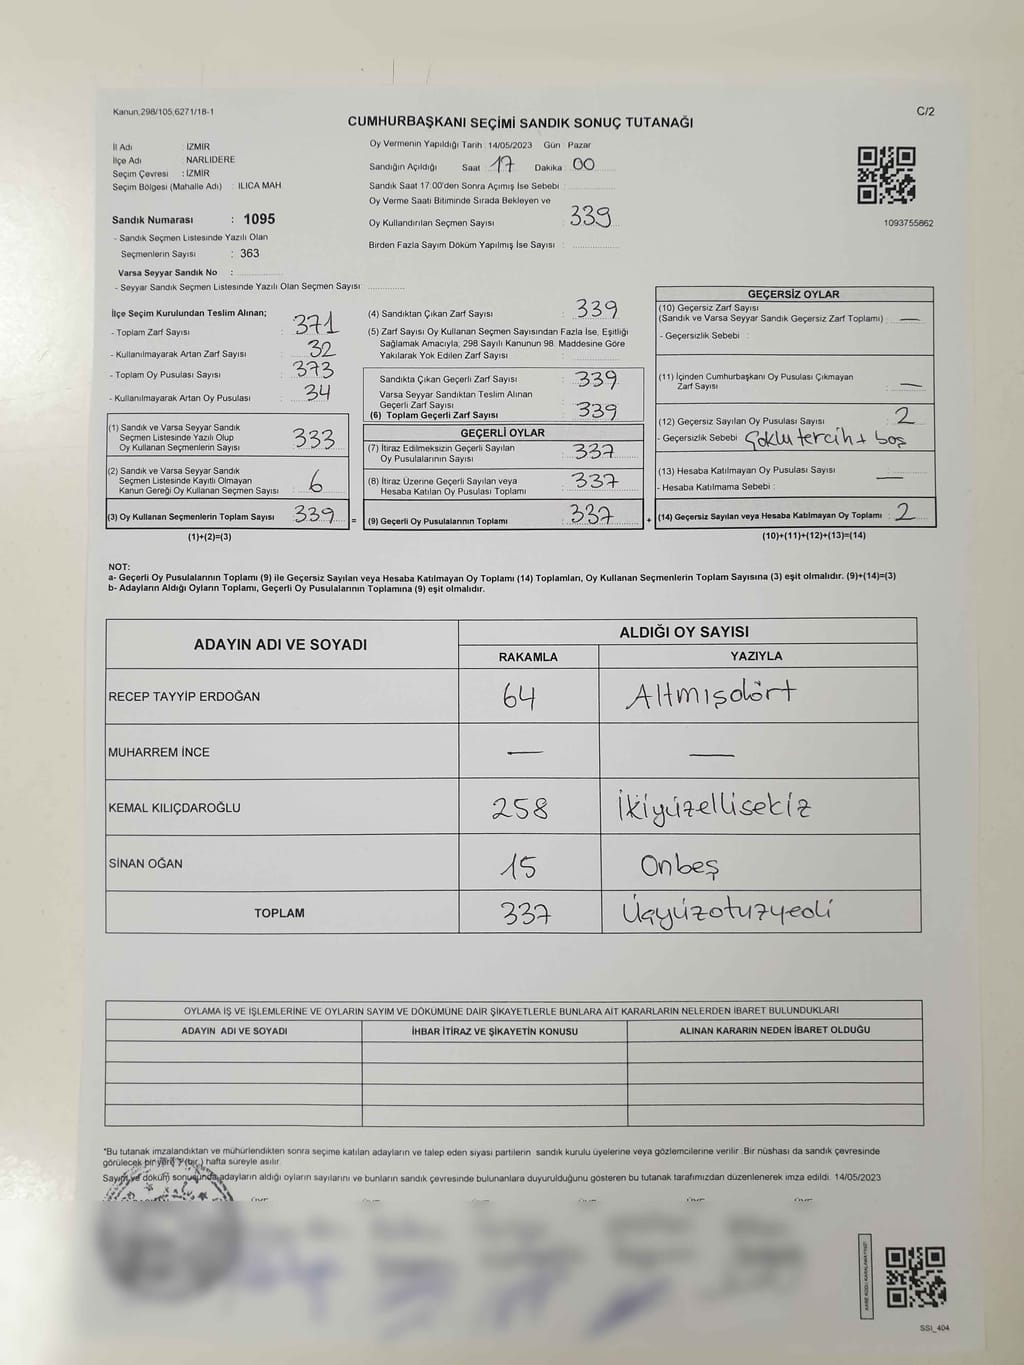 Kanun,298/105,6271/18-1
C/2
CUMHURBAŞKANI SEÇİMİ SANDIK SONUÇ TUTANAĞI
İl Adı : İZMİR
İlçe Adı : NARLIDERE
Seçim Çevresi : İZMİR
Seçim Bölgesi (Mahalle Adı) : ILICA MAH.
Sandık Numarası : 1095
- Sandık Seçmen Listesinde Yazılı Olan
Seçmenlerin Sayısı : 363
Varsa Seyyar Sandık No :
- Seyyar Sandık Seçmen Listesinde Yazılı Olan Seçmen Sayısı :
Oy Vermenin Yapıldığı Tarih : 14/05/2023 Gün : Pazar
Sandığın Açıldığı Saat 17 Dakika : 00
Sandık Saat 17:00'den Sonra Açımış İse Sebebi :
Oy Verme Saati Bitiminde Sırada Bekleyen ve
Oy Kullandırılan Seçmen Sayısı : 339
Birden Fazla Sayım Döküm Yapılmış İse Sayısı :
1093755862
İlçe Seçim Kurulundan Teslim Alınan;
- Toplam Zarf Sayısı : 371
- Kullanılmayarak Artan Zarf Sayısı : 32
- Toplam Oy Pusulası Sayısı : 373
- Kullanılmayarak Artan Oy Pusulası : 34
(1) Sandık ve Varsa Seyyar Sandık
Seçmen Listesinde Yazılı Olup
Oy Kullanan Seçmenlerin Sayısı : 333
(2) Sandık ve Varsa Seyyar Sandık
Seçmen Listesinde Kayıtlı Olmayan
Kanun Gereği Oy Kullanan Seçmen Sayısı : 6
(3) Oy Kullanan Seçmenlerin Toplam Sayısı : 339
(1)+(2)=(3)
=
(4) Sandıktan Çıkan Zarf Sayısı : 339
(5) Zarf Sayısı Oy Kullanan Seçmen Sayısından Fazla İse, Eşitliği
Sağlamak Amacıyla, 298 Sayılı Kanunun 98. Maddesine Göre
Yakılarak Yok Edilen Zarf Sayısı :
Sandıkta Çıkan Geçerli Zarf Sayısı : 339
Varsa Seyyar Sandıktan Teslim Alınan
Geçerli Zarf Sayısı :
(6) Toplam Geçerli Zarf Sayısı : 339
GEÇERLİ OYLAR
(7) İtiraz Edilmeksizin Geçerli Sayılan
Oy Pusulalarının Sayısı : 337
(8) İtiraz Üzerine Geçerli Sayılan veya
Hesaba Katılan Oy Pusulası Toplamı : 337
(9) Geçerli Oy Pusulalarının Toplamı : 337
+
GEÇERSİZ OYLAR
(10) Geçersiz Zarf Sayısı
(Sandık ve Varsa Seyyar Sandık Geçersiz Zarf Toplamı) : —
- Geçersizlik Sebebi :
(11) İçinden Cumhurbaşkanı Oy Pusulası Çıkmayan
Zarf Sayısı : —
(12) Geçersiz Sayılan Oy Pusulası Sayısı : 2
- Geçersizlik Sebebi : Çoklu tercih + boş
(13) Hesaba Katılmayan Oy Pusulası Sayısı : —
- Hesaba Katılmama Sebebi :
(14) Geçersiz Sayılan veya Hesaba Katılmayan Oy Toplamı : 2
(10)+(11)+(12)+(13)=(14)
NOT:
a- Geçerli Oy Pusulalarının Toplamı (9) ile Geçersiz Sayılan veya Hesaba Katılmayan Oy Toplamı (14) Toplamları, Oy Kullanan Seçmenlerin Toplam Sayısına (3) eşit olmalıdır. (9)+(14)=(3)
b- Adayların Aldığı Oyların Toplamı, Geçerli Oy Pusulalarının Toplamına (9) eşit olmalıdır.
ADAYIN ADI VE SOYADI
ALDIĞI OY SAYISI
RAKAMLA YAZIYLA
RECEP TAYYİP ERDOĞAN 64 Altmışdört
MUHARREM İNCE — —
KEMAL KILIÇDAROĞLU 258 İkiyüzellisekiz
SİNAN OĞAN 15 Onbeş
TOPLAM 337 Üçyüzotuzyedi
OYLAMA İŞ VE İŞLEMLERİNE VE OYLARIN SAYIM VE DÖKÜMÜNE DAİR ŞİKAYETLERLE BUNLARA AİT KARARLARIN NELERDEN İBARET BULUNDUKLARI
ADAYIN ADI VE SOYADI İHBAR İTİRAZ VE ŞİKAYETİN KONUSU ALINAN KARARIN NEDEN İBARET OLDUĞU
*Bu tutanak imzalandıktan ve mühürlendikten sonra seçime katılan adayların ve talep eden siyasi partilerin sandık kurulu üyelerine veya gözlemcilerine verilir. Bir nüshası da sandık çevresinde
görülecek bir yere 1 (bir) hafta süreyle asılır.
Sayım ve döküm sonucunda adayların aldığı oyların sayılarını ve bunların sandık çevresinde bulunanlara duyurulduğunu gösteren bu tutanak tarafımızdan düzenlenerek imza edildi. 14/05/2023
SSI_404